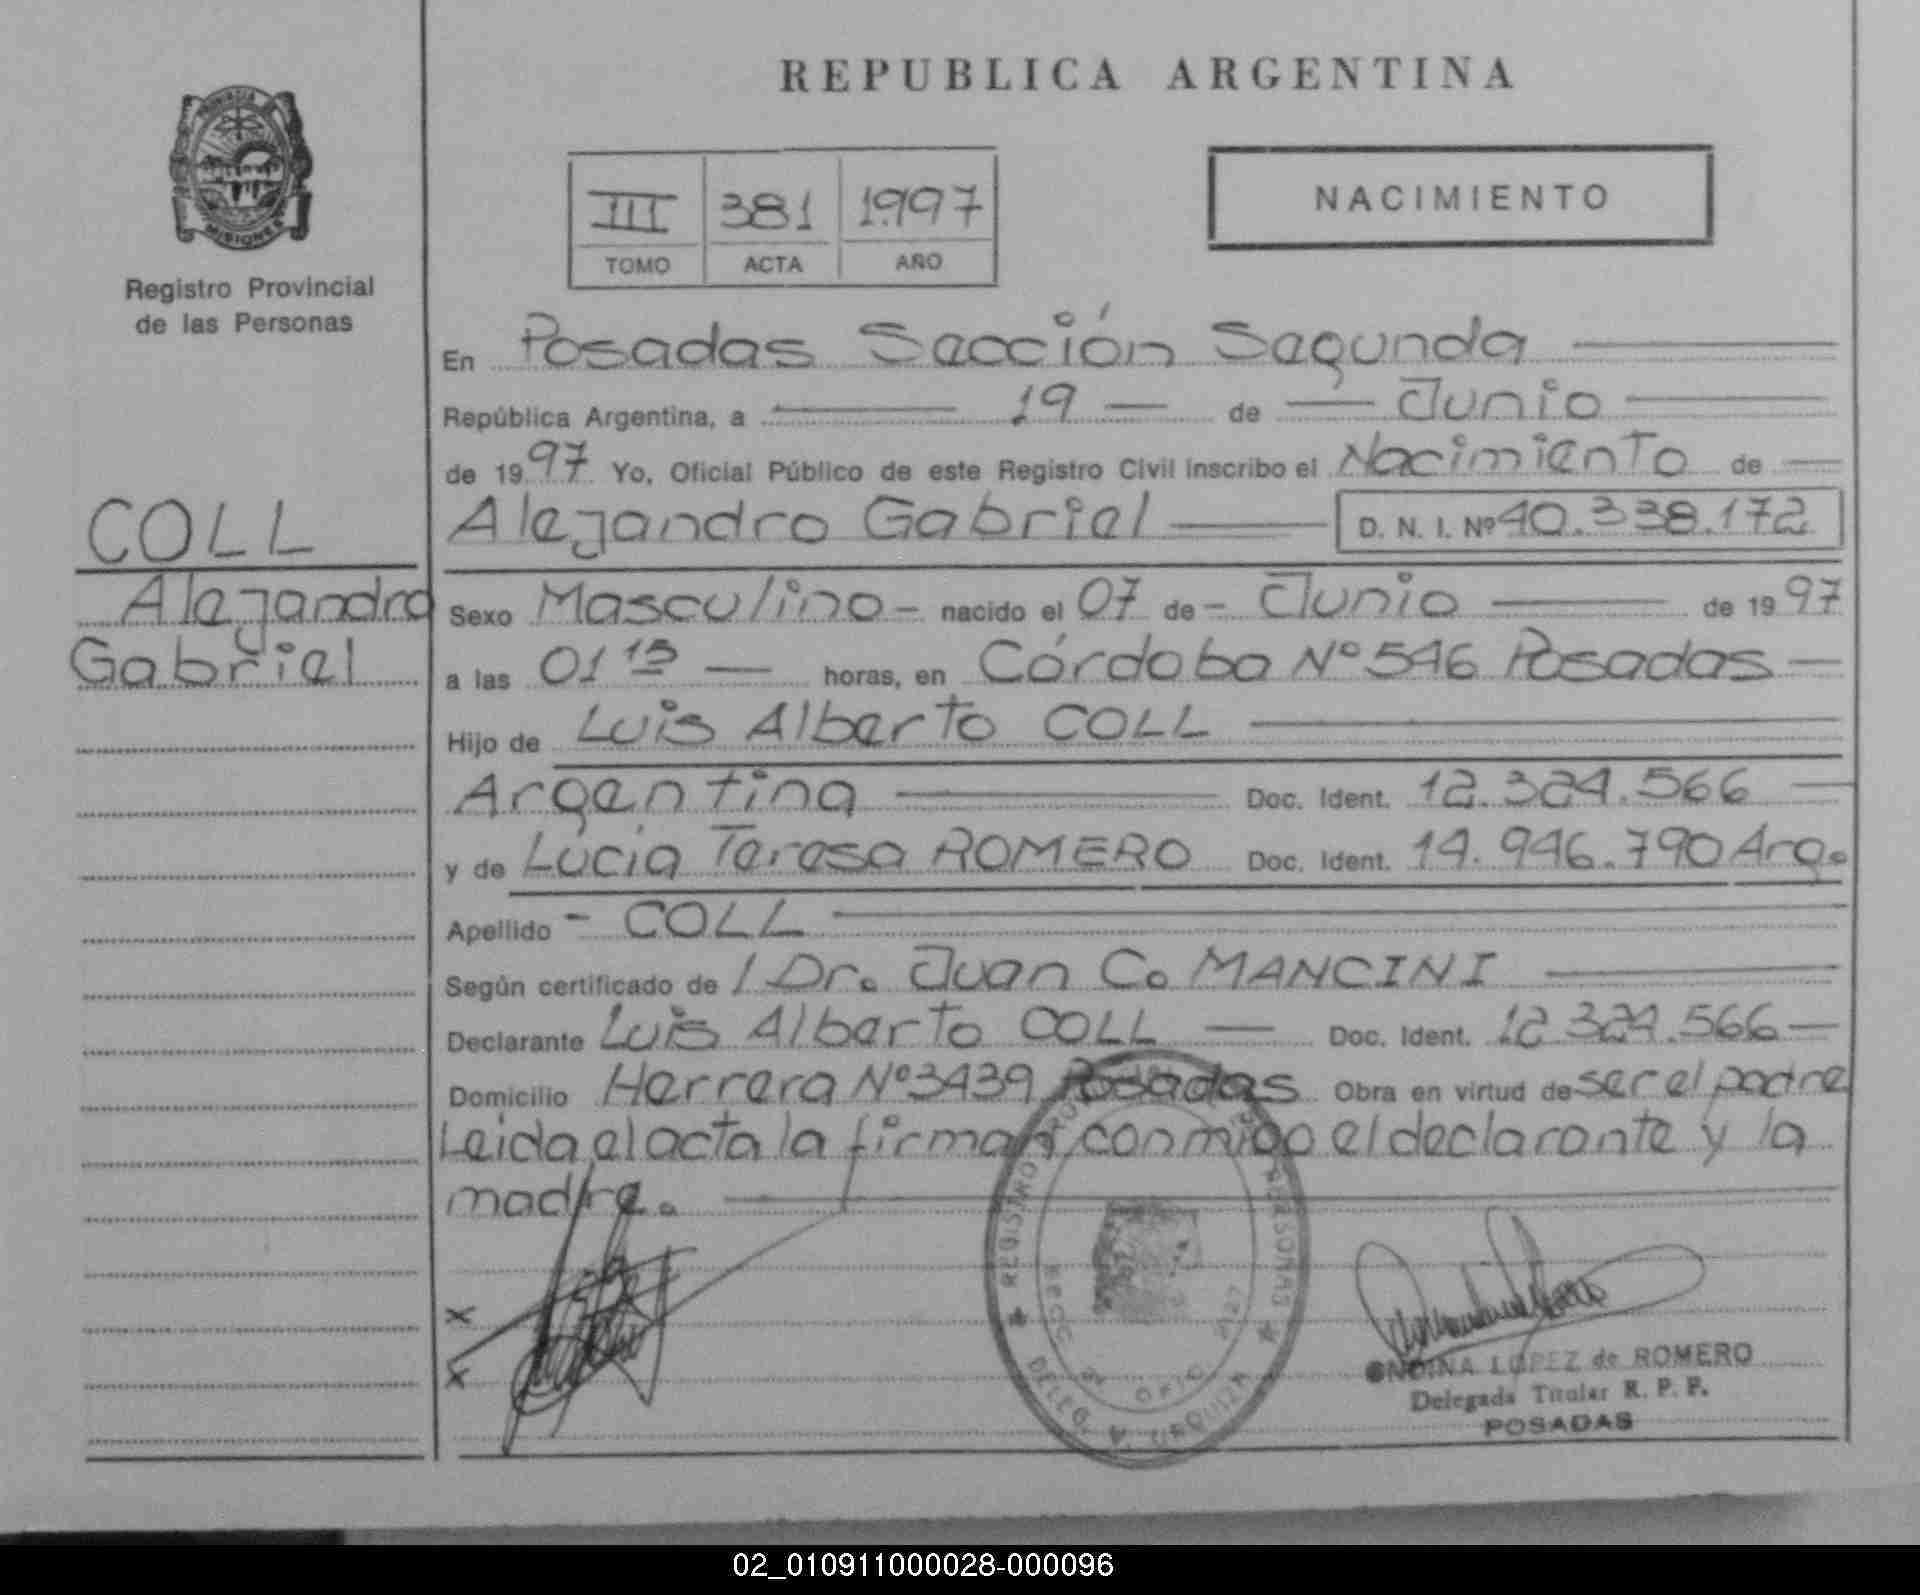 REPUBLICA ARGENTINA
PROVINCIA
MISIONES
Registro Provincial
de las Personas
III 381 1997
TOMO ACTA AÑO
NACIMIENTO
En Posadas Sección Segunda
República Argentina, a 19 de Junio
de 1997 Yo, Oficial Público de este Registro Civil inscribo el Nacimiento de
COLL
Alejandro Gabriel D. N. I. Nº 40.338.172
Alejandro
Gabriel
Sexo Masculino - nacido el 07 de - Junio de 1997
a las 01 15 horas, en Córdoba Nº 546 Posadas
Hijo de Luis Alberto COLL
Argentina Doc. Ident. 12.324.566
y de Lucía Teresa ROMERO Doc. Ident. 14.946.790 Arg.
Apellido - COLL
Según certificado de / Dr. Juan C. MANCINI
Declarante Luis Alberto COLL Doc. Ident. 12 324.566
Domicilio Herrera Nº 3439 Posadas Obra en virtud de ser el padre
Leida el acta la firman conmigo el declarante y la
madre.
x
x
REGISTRO PERSONAS
DELEG. URQUIZA
ONDINA LOPEZ de ROMERO
Delegada Titular R. P. P.
POSADAS
02_010911000028-000096